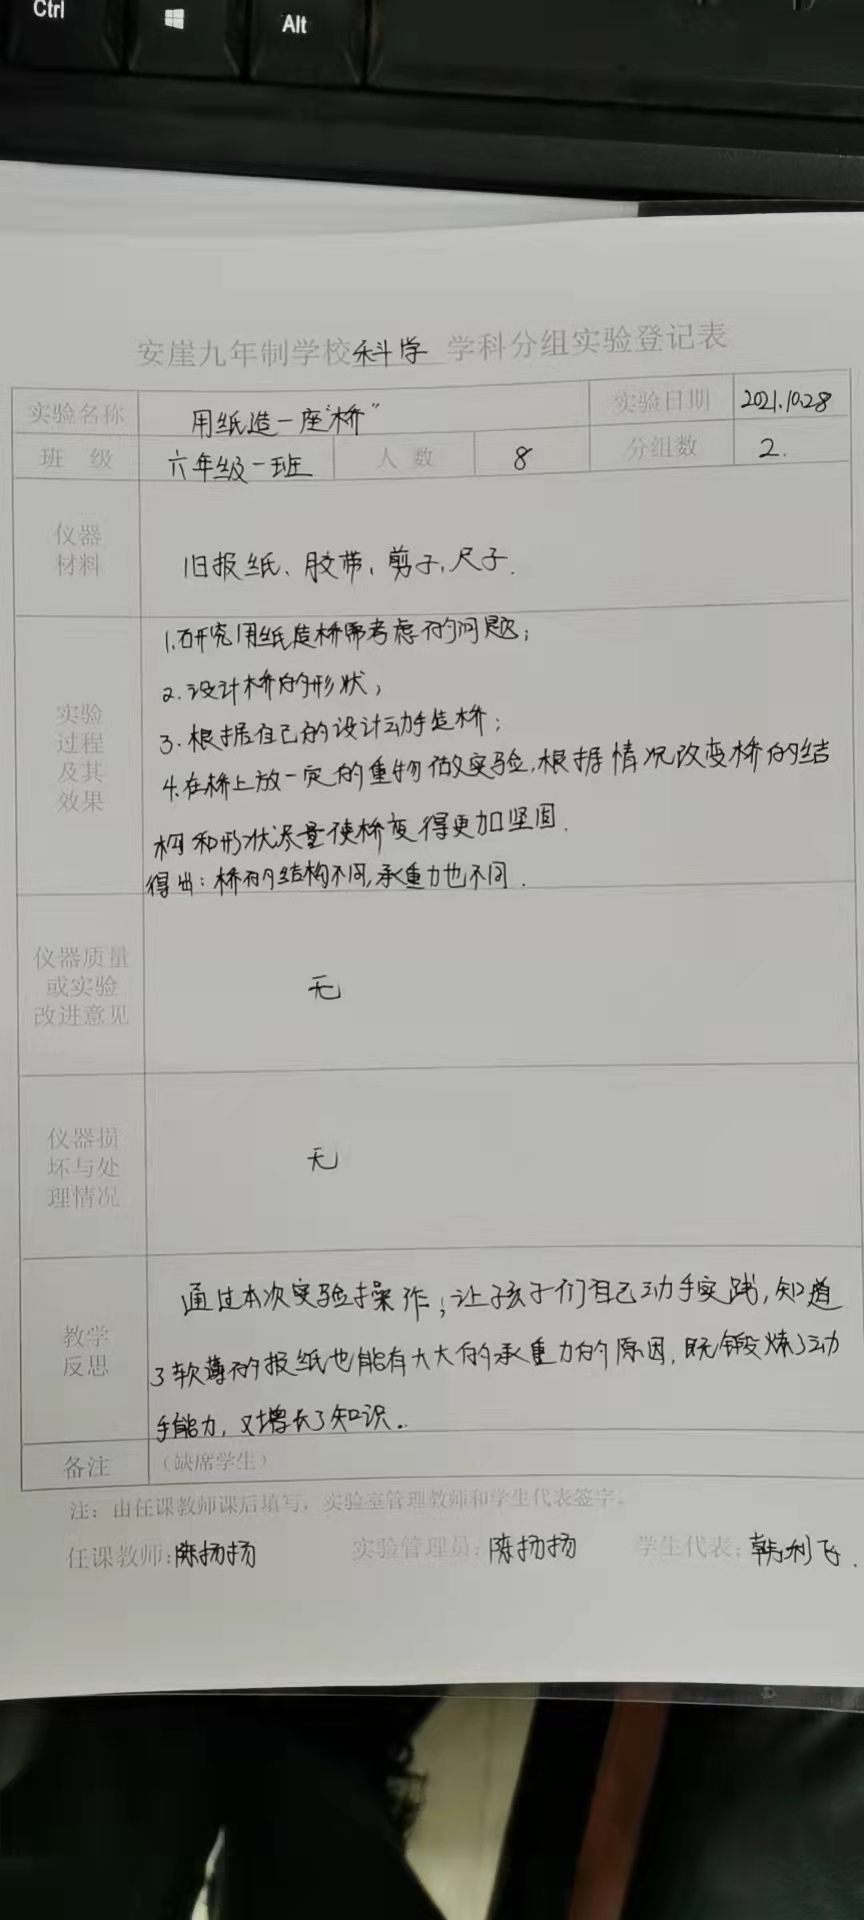 Ctrl
Alt
安崖九年制学校科学 学科分组实验登记表
实验名称 用纸造一座"桥" 实验日期 2021.10.28
班 级 六年级一班 人 数 8 分组数 2.
仪器
材料
旧报纸、胶带、剪子、尺子.
实验
过程
及其
效果
1.研究用纸造桥需考虑的问题;
2.设计桥的形状;
3.根据自己的设计动手造桥;
4.在桥上放一定的重物做实验,根据情况改变桥的结
构和形状尽量使桥变得更加坚固.
得出:桥的结构不同,承重力也不同.
仪器质量
或实验
改进意见
无
仪器损
坏与处
理情况
无
教学
反思
通过本次实验操作;让孩子们自己动手实践,知道
了软薄的报纸也能有大大的承重力的原因,既锻炼了动
手能力,又增长了知识..
备注 (缺席学生)
注:由任课教师课后填写,实验室管理教师和学生代表签字。
任课教师:陈扬扬 实验管理员:陈扬扬 学生代表:韩利飞.